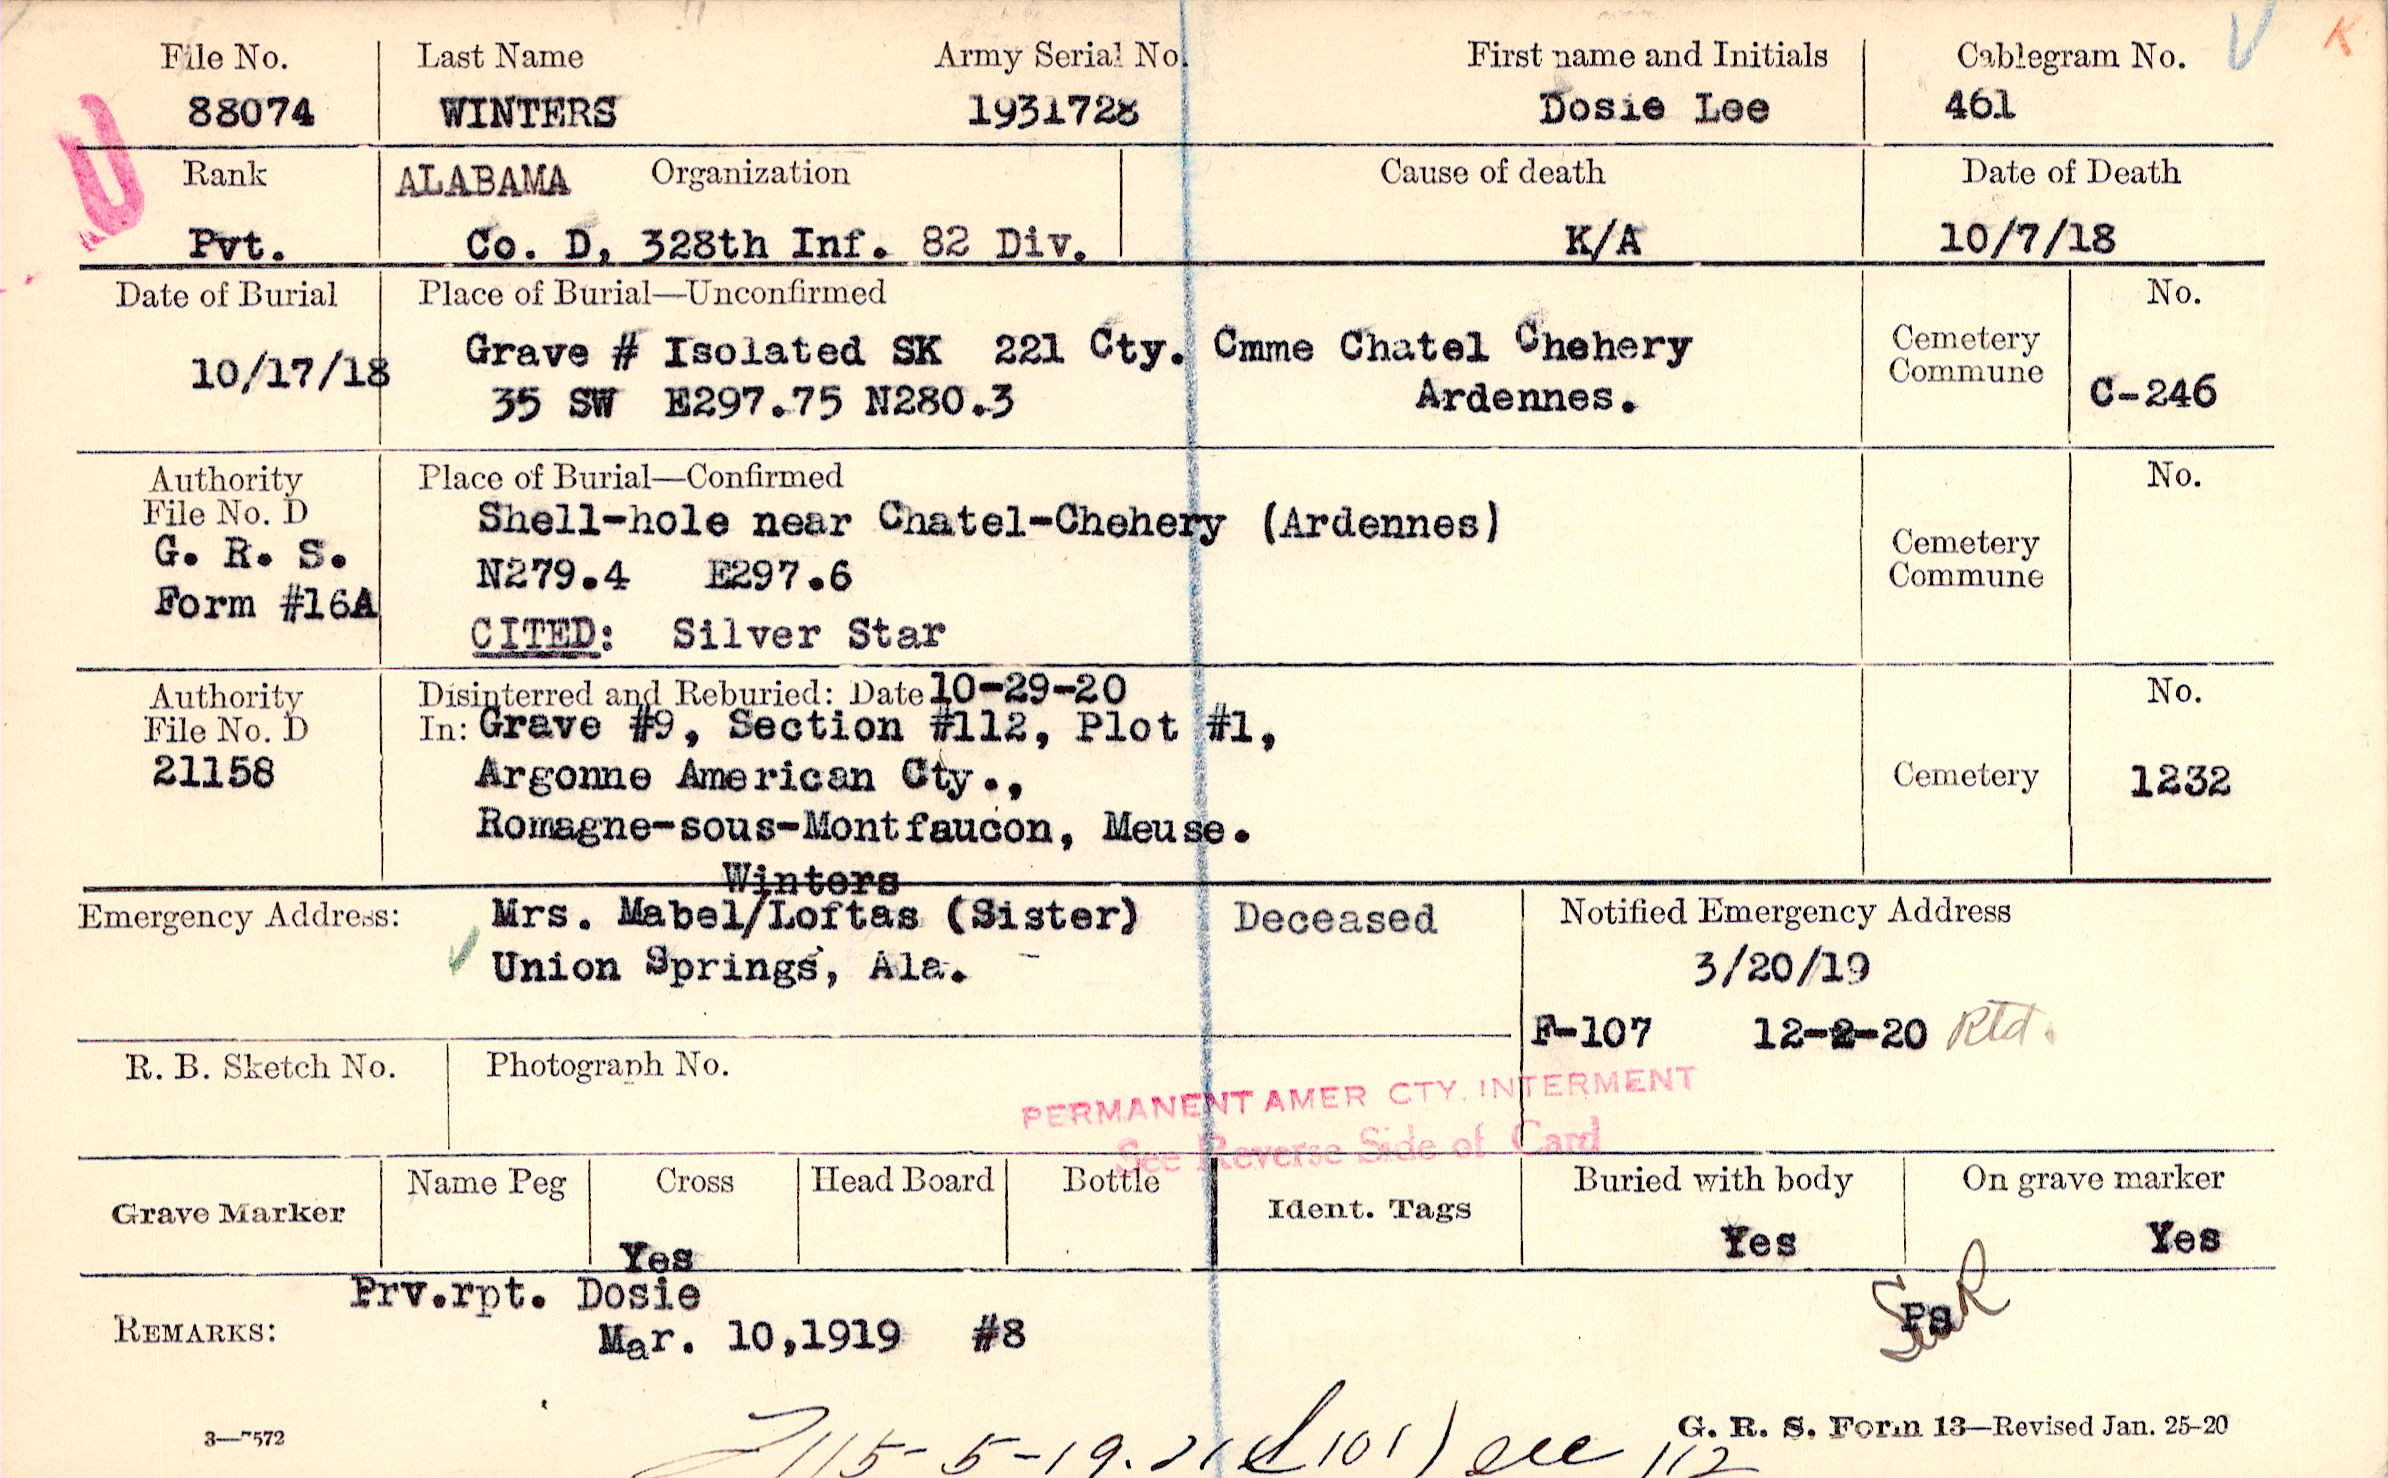 File No. Last Name Army Serial No. First name and Initials Cablegram No.
88074 WINTERS 1931728 Dosie Lee 461
Rank ALABAMA Organization Cause of death Date of Death
Pvt. Co. D, 328th Inf. 82 Div. K/A 10/7/18
Date of Burial Place of Burial—Unconfirmed No.
10/17/18 Grave # Isolated SK 221 Cty. Cmme Chatel Chehery Cemetery Commune
35 SW E297.75 N280.3 Ardennes. C-246
Authority Place of Burial—Confirmed No.
File No. D Shell-hole near Chatel-Chehery (Ardennes)
G. R. S. N279.4 E297.6 Cemetery Commune
Form #16A CITED: Silver Star
Authority Disinterred and Reburied: Date 10-29-20 No.
File No. D In: Grave #9, Section #112, Plot #1,
21158 Argonne American Cty., Cemetery 1232
Romagne-sous-Montfaucon, Meuse.
Winters
Emergency Address: Mrs. Mabel/Loftas (Sister) Deceased Notified Emergency Address
Union Springs, Ala. 3/20/19
F-107 12-2-20 Rtd.
R. B. Sketch No. Photograph No.
PERMANENT AMER CTY. INTERMENT
See Reverse Side of Card
Grave Marker Name Peg Cross Head Board Bottle Ident. Tags Buried with body On grave marker
Yes Yes Yes
Prv.rpt. Dosie
REMARKS: Mar. 10,1919 #8 Ps
3—7572 G. R. S. Form 13—Revised Jan. 25-20